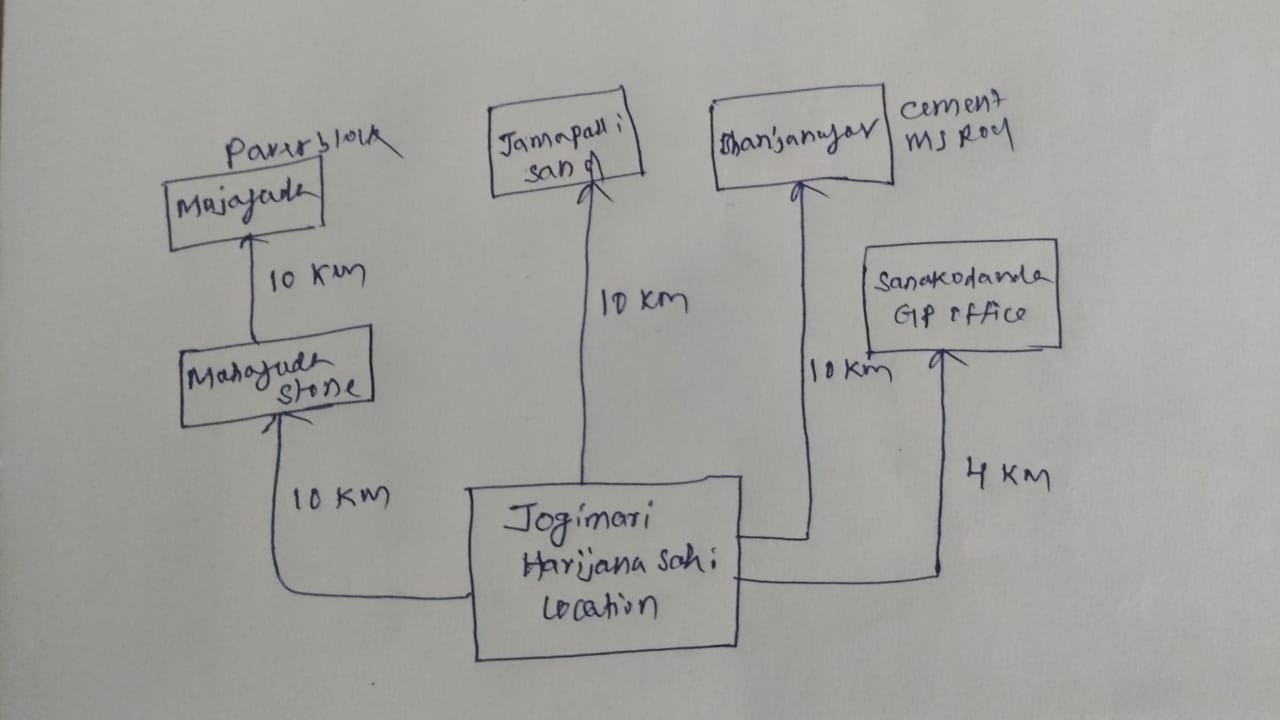 Paver block
Mujagada
10 KM
Mahajuda
stone
10 KM
Jamapalli
sand
10 KM
Bhanjanagar
cement
MS Rod
10 KM
Sanakodanda
GP office
4 KM
Jogimari
Harijana Sahi
Location